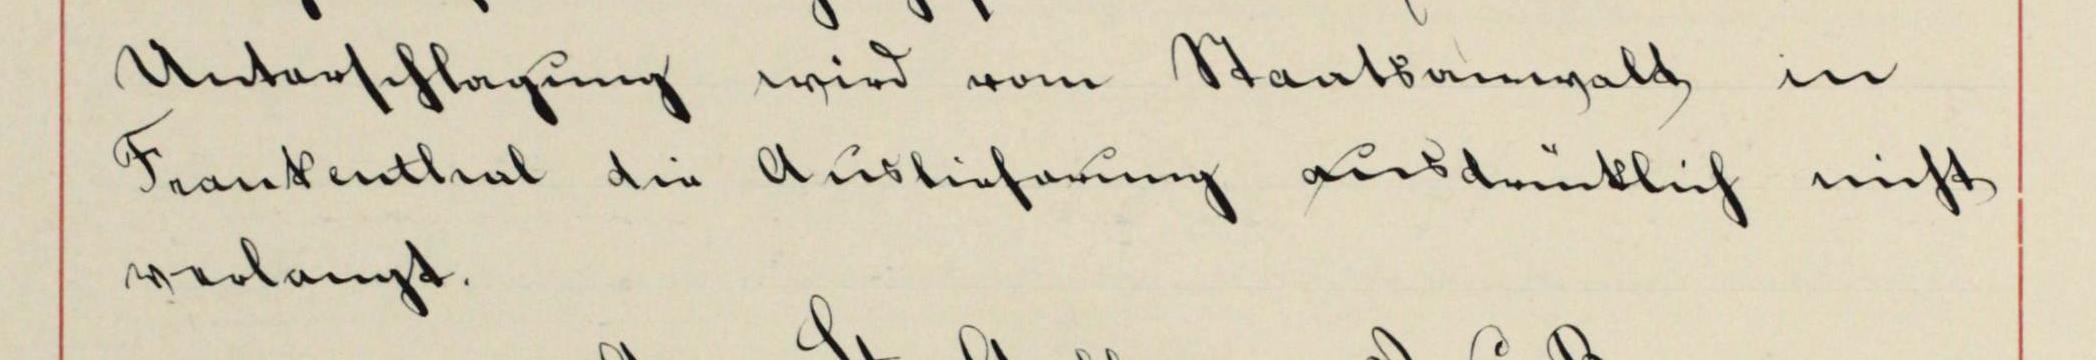 Unterschlagung wird vom Staatsanwalt in
Frankenthal die Auslieferung ausdrüklich nicht
verlangt.